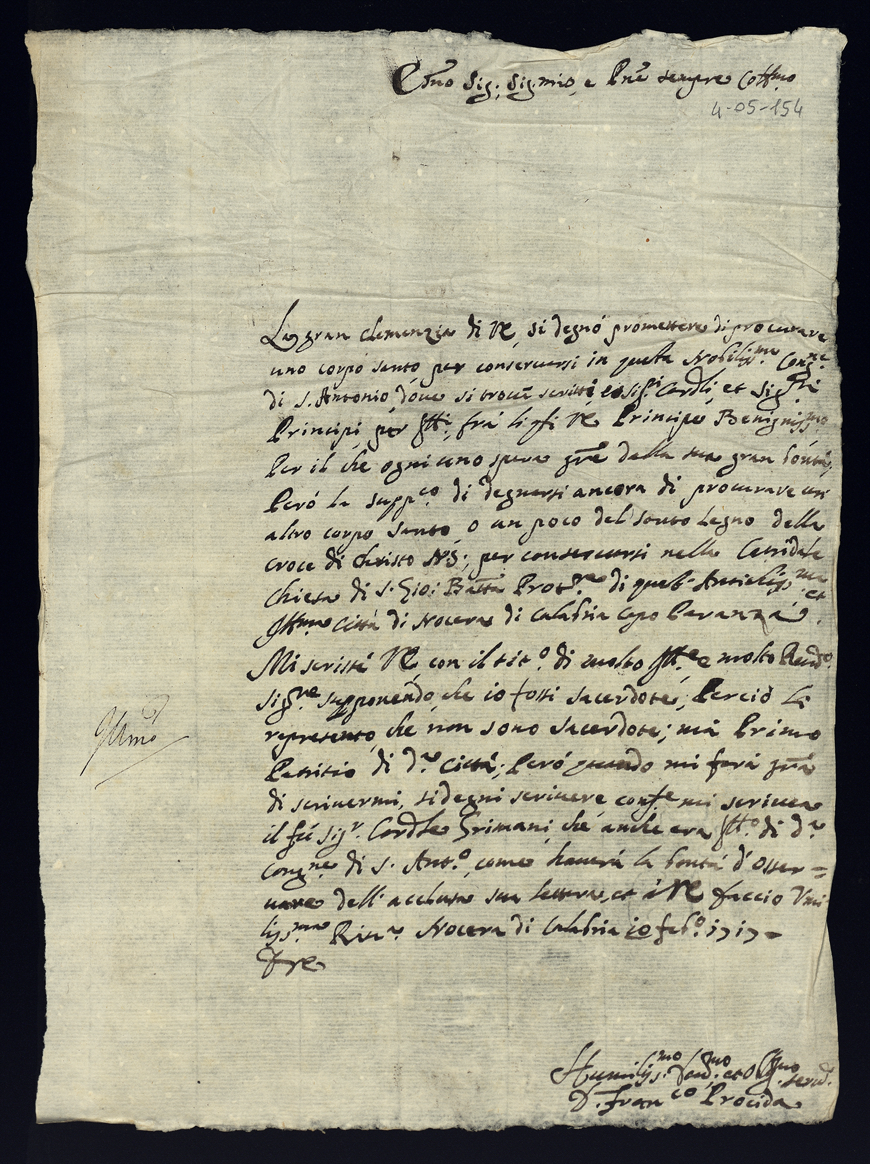 Em̃o Sig:, Sig: mio, e Prñe sempre Coll^mo
4-05-154
La gran clemenzia di VE, si degnò promettere di procurare
uno corpo santo per conservarsi in questa Nobiliss^ma Cong^ne
di S. Antonio, dove si trovã scritti Sig^ri Cardli, et Sig^ri
Principi per VE Principe Benigniss^mo
Per il che ogni uno spera grã dalla sua gran bontà,
Però la supp^co di degnarsi ancora di procurare un
altro corpo santo, o un poco del santo Legno della
croce di Christo NS; per conservarsi nella Cattĩdale
Chiesa di S. Gio: Batta Prot^re di quest' Antichiss^ma et
Ill^ma Città di Nocera di Calabria capo
Mi scrisse VE con il tit^o. di molto Ill^e e molto Revd^o.
Sig^re supponendo, che io fossi sacerdote; Perciò Li
represento, che non sono sacerdote; mà Primo
Patritio di d^a Città; Però quando mi farà grã
di scrivermi, si degni scrivere conf^e mi scrivea
il fù Sig^r. Cardle Grimani, che anche era di d^a
Cong^ne di S. Ant^o, come haverà la bontà d'osser=
vare dell' acclusa sua lettera, et à VE faccio Umi
liss^ma Riv^a Nocera di Calabria 10 feb^o. 1717
DVE
Ill^mo
Humiliss^mo Dev^mo et Obg^mo serv^e.
D. Fran^co Procida